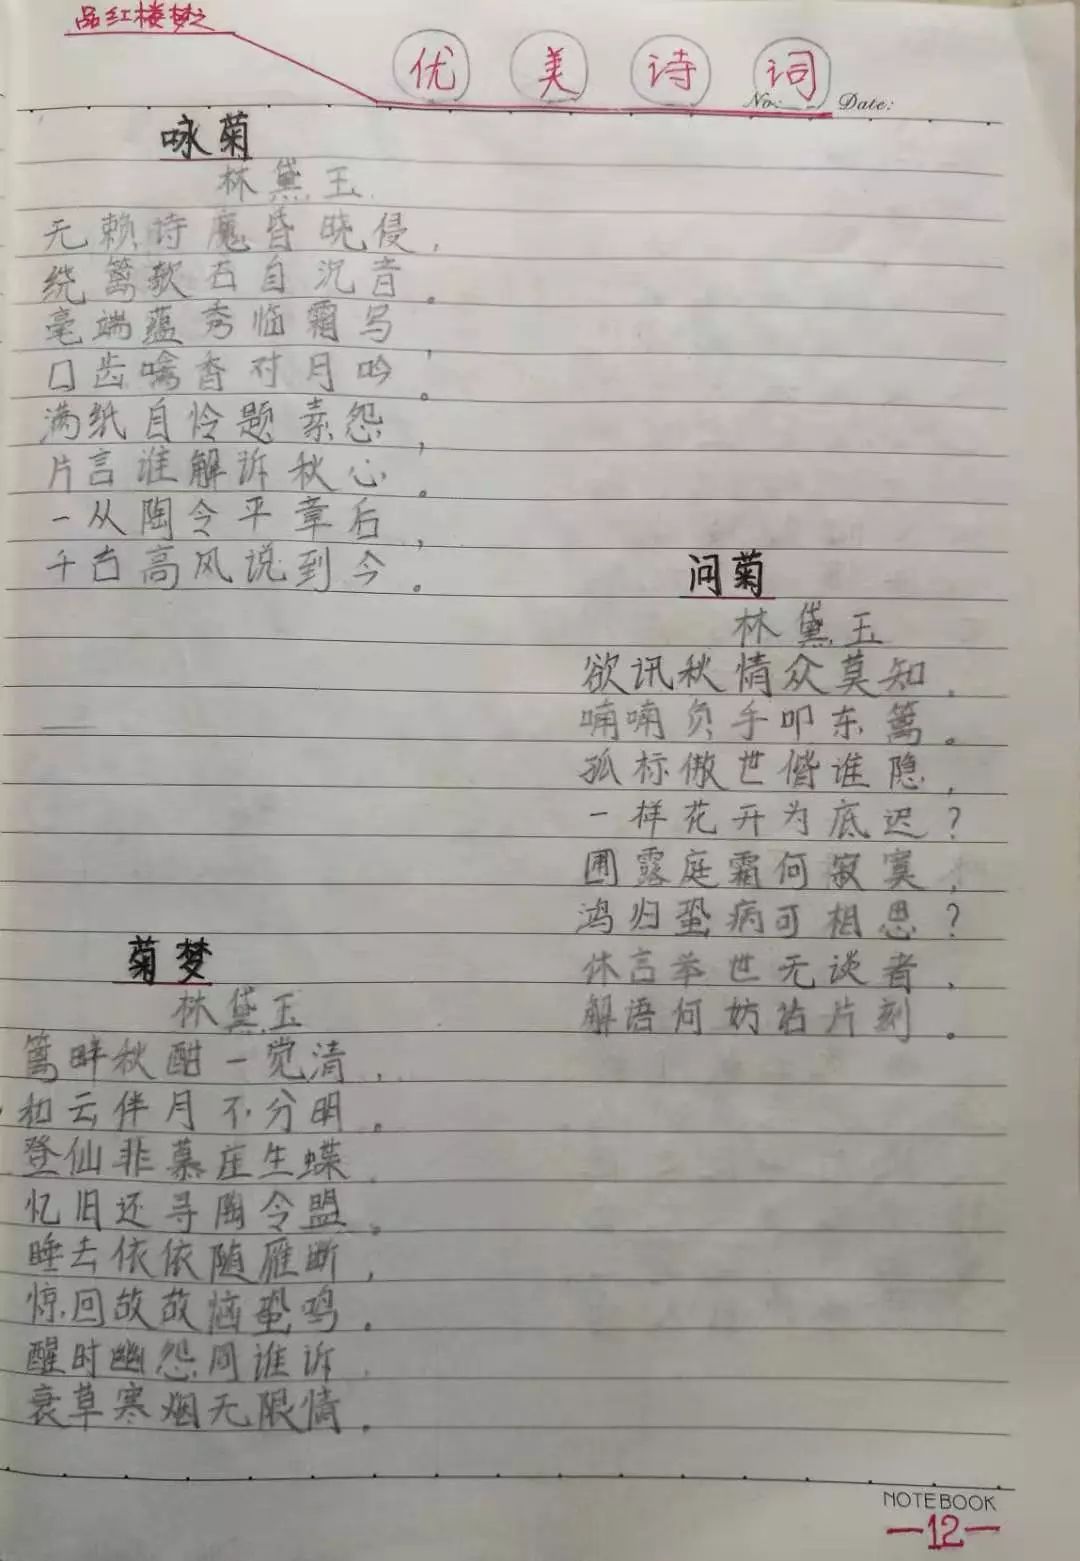 品红楼梦之
优美诗词
No:
Date:
咏菊
林黛玉
无赖诗魔昏晓侵,
绕篱欹石自沉音。
毫端蕴秀临霜写,
口齿噙香对月吟。
满纸自怜题素怨,
片言谁解诉秋心。
一从陶令平章后,
千古高风说到今。
问菊
林黛玉
欲讯秋情众莫知,
喃喃负手叩东篱。
孤标傲世偕谁隐,
一样花开为底迟?
圃露庭霜何寂寞,
鸿归蛩病可相思?
休言举世无谈者,
解语何妨话片刻。
菊梦
林黛玉
篱畔秋酣一觉清,
和云伴月不分明。
登仙非慕庄生蝶
忆旧还寻陶令盟。
睡去依依随雁断,
惊回故故恼蛩鸣。
醒时幽怨同谁诉
衰草寒烟无限情。
NOTEBOOK
—12—